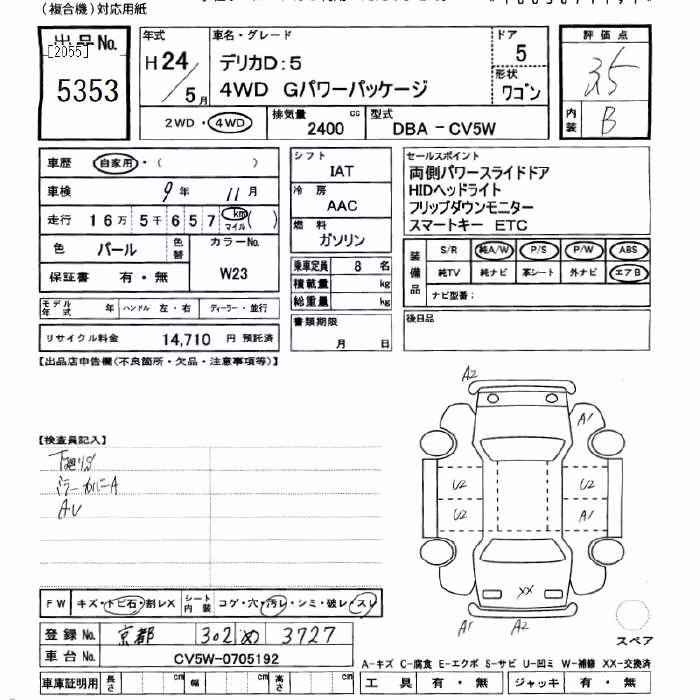 (複合機)対応用紙
出品No.
[2055]
5353
年式
H 24 / 5月
車名・グレード
デリカD:5
4WD Gパワーパッケージ
ドア
5
形状
ワゴン
2WD・4WD
排気量
2400 cc
型式
DBA-CV5W
評価点
3.5
内装
B
車歴 自家用・( )
車検 9年 11月
走行 16万5千657 km マイル ( )
色 パール 色替 カラーNo. W23
保証書 有・無
モデル年式 年 ハンドル 左・右 ディーラー・並行
リサイクル料金 14,710 円 預託済
シフト
IAT
冷房
AAC
燃料
ガソリン
乗車定員 8 名
積載量 kg
総重量 kg
書類期限
月 日
セールスポイント
両側パワースライドドア
HIDヘッドライト
フリップダウンモニター
スマートキー ETC
装備品
S/R 純A/W P/S P/W ABS
純TV 純ナビ 革シート 外ナビ エアB
ナビ型番:
後日品
【出品店申告欄(不良箇所・欠品・注意事項等)】
【検査員記入】
下廻りS
ミラーカバーA
AU
A2
A1
U2 U2
U2 A1
XX
A1 A2
スペア
FW キズ・トビ石・割レX シート内装 コゲ・穴・汚レ・シミ・破レ・スレ
登録No. 京都 302 め 3727
車台No. CV5W-0705192
車庫証明用 長さ cm 幅 cm 高さ cm
A-キズ C-腐食 E-エクボ S-サビ U-凹ミ W-補修 XX-交換済
工具 有・無 ジャッキ 有・無